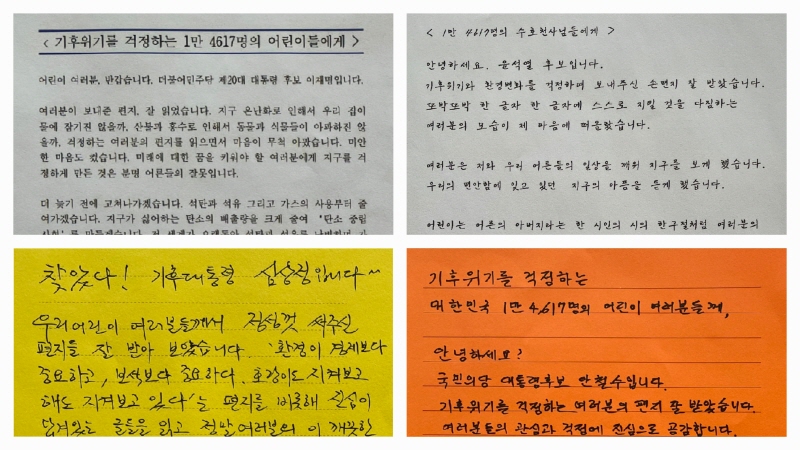 < 기후위기를 걱정하는 1만 4617명의 어린이들에게 >
어린이 여러분, 반갑습니다. 더불어민주당 제20대 대통령 후보 이재명입니다.
여러분이 보내준 편지, 잘 읽었습니다. 지구 온난화로 인해서 우리 집이
물에 잠기진 않을까, 산불과 홍수로 인해서 동물과 식물들이 아파하진 않
을까, 걱정하는 여러분의 편지를 읽으면서 마음이 무척 아팠습니다. 미안
한 마음도 컸습니다. 미래에 대한 꿈을 키워야 할 여러분에게 지구를 걱
정하게 만든 것은 분명 어른들의 잘못입니다.
더 늦기 전에 고쳐나가겠습니다. 석탄과 석유 그리고 가스의 사용부터 줄
여가겠습니다. 지구가 싫어하는 탄소의 배출량을 크게 줄여 '탄소 중립
< 1만 4617명의 수호천사님들에게 >
안녕하세요. 윤석열 후보입니다.
기후위기와 환경변화를 걱정하며 보내주신 손편지 잘 받았습니다.
또박또박 한 글자 한 글자에 스스로 지킬 것을 다짐하는
여러분의 모습이 제 마음에 떠올랐습니다.
여러분은 저와 우리 어른들의 일상을 깨워 지구를 보게 했습니다.
우리의 편안함에 잊고 있던 지구의 아픔을 듣게 했습니다.
어린이는 어른의 아버지라는 한 시인의 시의 한구절처럼 여러분의
찾았다! 기후대통령 심상정입니다~
우리 어린이 여러분들께서 정성껏 써주신
편지를 잘 받아 보았습니다. '환경이 경제보다
중요하고, 보석보다 중요하다. 호랑이도 지켜보고
해도 지켜보고 있다'는 편지를 비롯해 진심이
담겨있는 글들을 읽고 정말 여러분의 이 깨끗한
기후위기를 걱정하는
대한민국 1만 4,617명의 어린이 여러분들께,
안녕하세요?
국민의당 대통령후보 안철수입니다.
기후위기를 걱정하는 여러분의 편지 잘 받았습니다.
여러분들의 관심과 걱정에 진심으로 공감합니다.